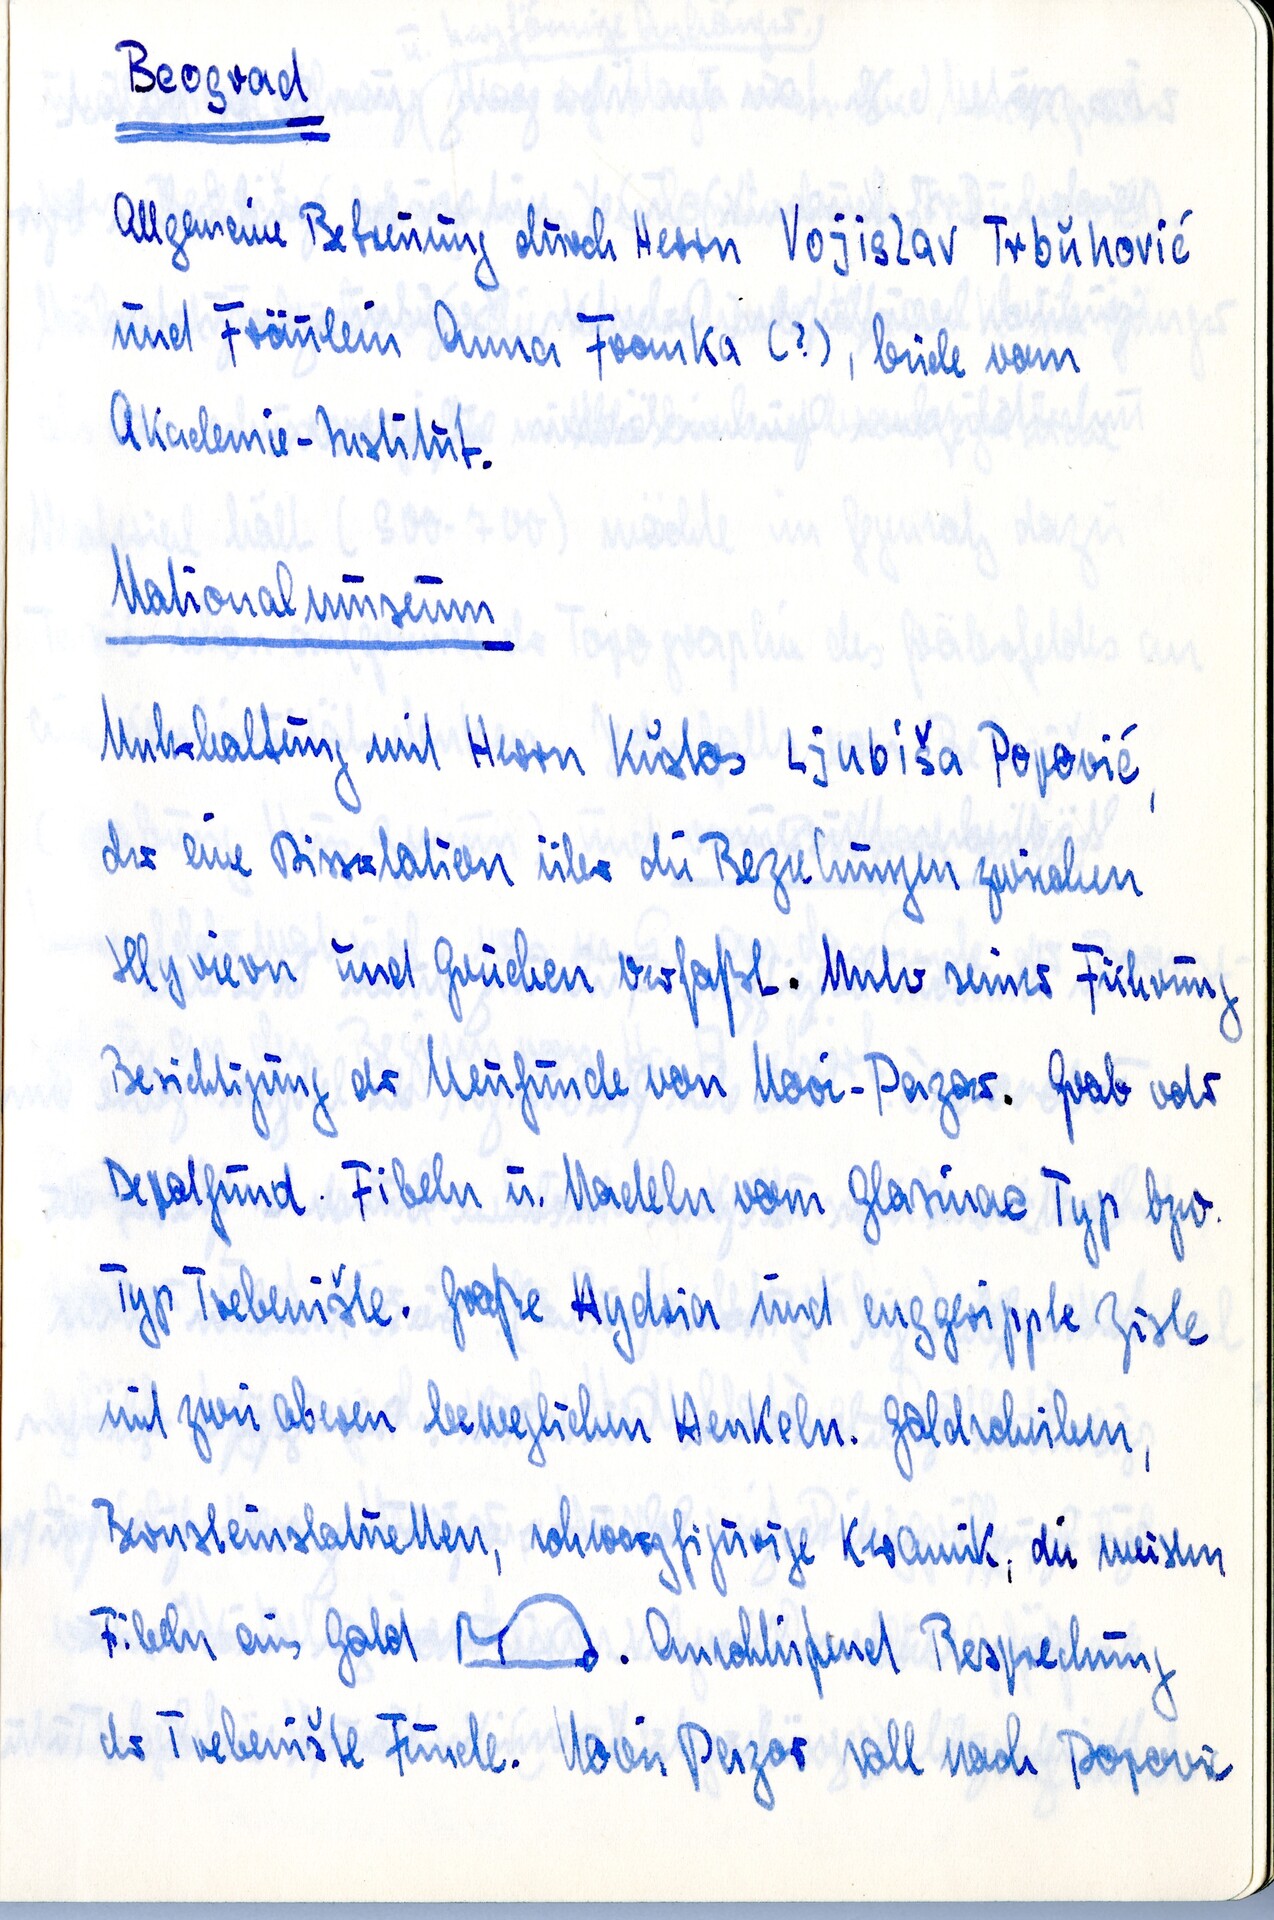 Beograd
Allgemeine Betreuung durch Herrn Vojislav Trbuhović
und Fräulein Anna Franka (?), beide vom
Akademie-Institut.
Nationalmuseum
Unterhaltung mit Herrn Kustos Ljubiša Popović,
der eine Dissertation über die Beziehungen zwischen
Illyriern und Griechen verfaßt. Unter seiner Führung
Besichtigung der Neufunde von Novi-Pazar. Grab oder
Depotfund. Fibeln u. Nadeln vom Glasinac Typ bzw.
Typ Trebenište. Große Hydria und enggerippte Ziste
mit zwei oberen beweglichen Henkeln. Goldscheiben,
Bernsteinstatuetten, schwarzfigurige Keramik, die meisten
Fibeln aus Gold. Anschließend Besprechung
der Trebenište Funde. Novi Pazar soll nach Popović